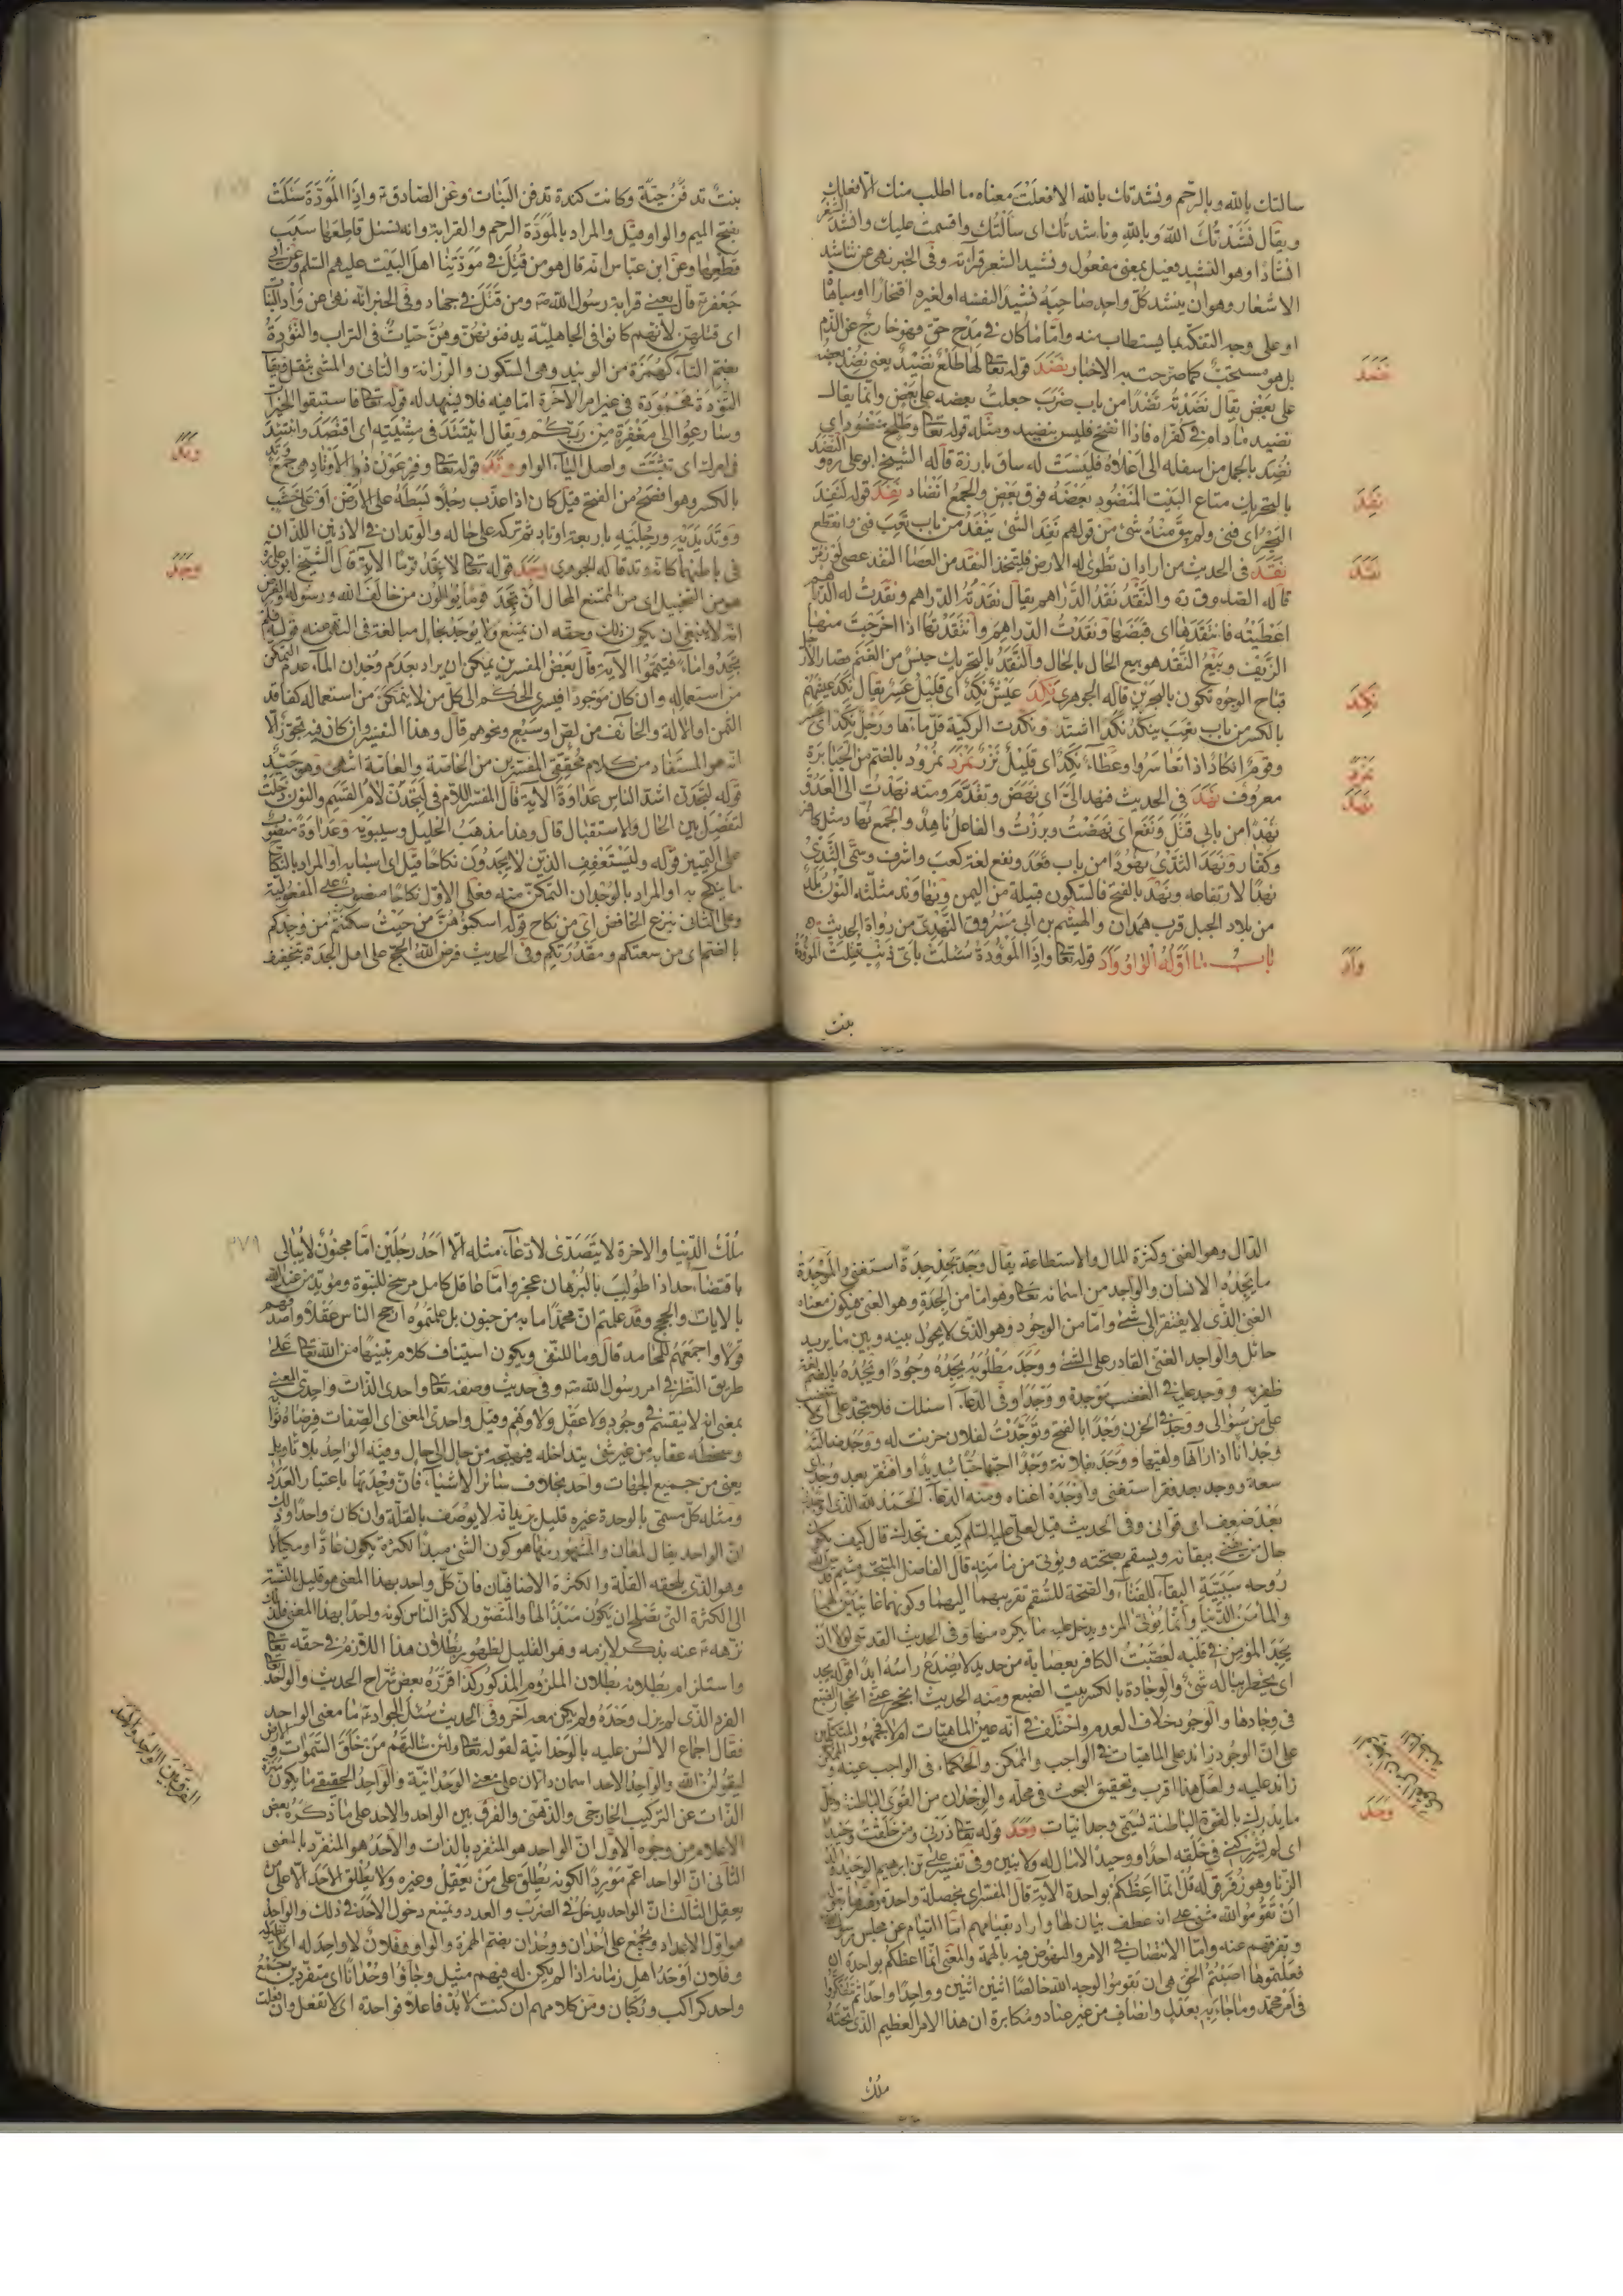 سالتك بالله وبالرحم ونشدتك بالله الا فعلت معناه ما اطلب منك الا فعلك
ويقال نشدتك الله وبالله وناشدتك اى سالتك واقسمت عليك وانشد الشعر
انشادا وهو النشيد فعيل بمعنى مفعول ونشيد الشعر قرآءته وفى الخبر نهى عن تناشد
الاشعار وهو ان ينشد كل واحد صاحبه نشيدا لنفسه او لغيره افتخارا او مباهاة
او على وجه التفكه بما يستطاب منه واما ما كان فى مدح حق فهو خارج عن الذم
بل هو مستحب كما صرحت به الاخبار نضد قوله تعا لها طلع نضيد يعنى نضد بعضه
على بعض يقال نضدته نضدا من باب ضرب جعلت بعضه على بعض وانما يقال
نضيد مادام فى كفراه فاذا انفتح فليس بنضيد ومثله قوله تعا وطلح منضود اى
نضد بالحمل من اسفله الى اعلاه فليست له ساق بارزة قاله الشيخ ابو على ره والنضد
بالتحريك متاع البيت المنضود بعضه فوق بعض والجمع انضاد نفد قوله لنفد
البحر اى فنى ولم يبق منه شئ من قولهم نفد الشئ ينفد من باب تعب فنى وانقطع
نقد فى الحديث من اراد ان تطوى له الارض فليتخذ النقد من العصا النقد عصى لوز مر
قاله الصدوق ره والنقد نقد الدراهم يقال نقدته الدراهم ونقدت له الدراهم
اعطيته فانتقدها اى قبضها ونقدت الدراهم وانتقدتها اذا اخرجت منها
الزيف وبيع النقد هو بيع الحال بالحال والنقد بالتحريك جنس من الغنم قصار الارجل
قباح الوجوه تكون بالبحرين قاله الجوهرى نكد عيش نكد اى قليل عسر يقال نكد عيشهم
بالكسر من باب تعب ينكد نكدا اشتد ونكدت الركية قل مآءها ورجل نكد اى عسر
وقوم انكاد اذا تعاسروا وعطآء نكد اى قليل نزر نمرد نمرود بالضم من الجبابرة
معروف نهد فى الحديث فنهد الى اى نهض وتقدم ومنه نهدت الى العدو
نهدا من بابى قتل ونفع اى نهضت وبرزت والفاعل ناهد والجمع نهاد مثل كافر
وكفار ونهد الثدى نهودا من باب قعد ونفع لغة كعب واشرف وسمى الثدى
نهدا لارتفاعه ونهد بالفتح فالسكون قبيلة من اليمن ونهاوند مثلثه النون بلد
من بلاد الجبل قرب همدان والهيثم بن ابى مسروق النهدى من رواة الحديث
باب ما اوله الواو وأد قوله تعا واذا الموؤدة سئلت باى ذنب قتلت الموؤدة
بنت
نضد
نفد
نقد
نكد
نمرد
نهد
وأد
بنت تدفن حية وكانت كندة تدفن البنات وعن الصادق ع واذا المودة سئلت
بفتح الميم والواو قيل والمراد بالمودة الرحم والقرابة وانه يسئل قاطعها سبب
قطعها وعن ابن عباس انه قال هو من قتل فى مودتنا اهل البيت عليهم السلم وعن ابى
جعفر ع قال يعنى قرابة رسول الله ص ومن قتل فى جهاد وفى الخبر انه نهى عن وأد البنات
اى قتلهن لانهم كانوا فى الجاهلية يدفنونهن وهن حيات فى التراب والتؤدة
بضم التآء كهمزة من الوئيد وهى السكون والرزانة والتانى والمشى بثقل يقال
التؤدة محمودة فى غير امر الآخرة اما فيه فلا يشهد له قوله تعا فاستبقوا الخيرات
وسارعوا الى مغفرة من ربكم ويقال اتئد فى مشيته اى اقتصد واتئد
فى امرك اى تثبت واصل التآء الواو وتد قوله تعا وفرعون ذو الاوتاد هى جمع وتد
بالكسر وهو افصح من الفتح قيل كان اذا عذب رجلا بسطه على الارض او على خشب
ووتد يديه ورجليه باربعة اوتاد ثم تركه على حاله والوتدان فى الاذنين اللذان
فى باطنهما كانه وتد قاله الجوهرى وجد قوله تعا لا تجد قوما الآية قال الشيخ ابو على ره
هو من التخييل اى من الممتنع المحال ان تجد قوما يوالون من خالف الله ورسوله والغرض
انه لا ينبغى ان يكون ذلك وحقه ان يمتنع ولا يوجد بحال مبالغة فى النهى عنه قوله فلم
تجدوا مآء فتيمموا الآية قال بعض المفسرين يمكن ان يراد بعدم وجدان المآء عدم التمكن
من استعماله وان كان موجودا فيسرى الحكم الى كل من لا يتمكن من استعماله كفاقد
الثمن او الآلة والخآئف من لص او سبع ونحوهم قال وهذا التفسير وان كان فيه تجوز الا
انه هو المستفاد من كلام محققى المفسرين من الخاصة والعامة انتهى وهو جيد
قوله لتجدن اشد الناس عداوة الآية قال المفسر اللام فى لتجدن لام القسم والنون دخلت
لتفصل بين الحال والاستقبال قال وهذا مذهب الخليل وسيبويه وعداوة منصوب
على التمييز قوله وليستعفف الذين لا يجدون نكاحا قيل اى اسبابه او المراد بالنكاح
ما ينكح به او المراد بالوجدان التمكن منه فعلى الاول نكاحا منصوب على المفعولية
وعلى الثانى بنزع الخافض اى من نكاح قوله اسكنوهن من حيث سكنتم من وجدكم
بالضم اى من سعتكم ومقدرتكم وفى الحديث فرض الله الحج على اهل الجدة بتخفيف
وتد
وجد
الدال وهو الغنى وكثرة المال والاستطاعة يقال وجد يجد جدة استغنى والموجدة
ما يجده الانسان والواجد من اسمائه تعا وهو اما من الجدة وهو الغنى فيكون معناه
الغنى الذى لا يفتقر الى شئ واما من الوجود وهو الذى لا يحول بينه وبين ما يريد
حائل والواجد الغنى القادر على الشئ ووجد مطلوبه يجده وجودا ويجده بالضم لغة
ظفر به ووجد عليه فى الغضب موجدة ووجدا وفى الدعآء اسئلك فلا تجد على اى لا تغضب
على من سؤالى ووجد فى الحزن وجدا بالفتح وتوجدت لفلان حزنت له ووجد ضالته
وجدانا اذا رآها ولقيها ووجد بفلانة وجدا احبها حبا شديدا وافتقر بعد وجد اى
سعة ووجد بعد فقر استغنى واوجده اغناه ومنه الدعآء الحمد لله الذى اوجدنى
بعد ضعف اى قوانى وفى الحديث قيل لعلى عليه السلم كيف تجدك قال كيف يكون
حال من يفنى ببقائه ويسقم بصحته ويؤتى من مامنه قال الفاضل المتبحر ميثم قدس الله
روحه سببية البقآء للفنآء والصحة للسقم تقريبهما اليهما وكونهما غايتين لهما
والمامن الدنيا وانما يؤتى المرء ويدخل عليه ما يكره منها وفى الحديث القدسى لولا ان
يجد المؤمن فى قلبه لعصبت الكافر بعصابة من حديد لا يصدع راسه ابدا قوله يجد
اى يخطر بباله شئ والوجادة بالكسر بيت الضبع ومنه الحديث انجحر عنى انجحار الضبع
فى وجادها والوجود خلاف العدم واختلف فى انه عين الماهيات ام لا فجمهور المتكلمين
على ان الوجود زائد على الماهيات فى الواجب والممكن والحكمآء فى الواجب عينه وفى الممكن
زائد عليه ولعل هذا اقرب وتحقيق البحث فى محله والوجدان من القوى الباطنة وكل
ما يدرك بالقوة الباطنة يسمى وجدانيات وحد قوله تعا ذرنى ومن خلقت وحيدا
اى لم يشركنى فى خلقه احد او وحيدا لا مال له ولا بنين وفى تفسير على بن ابرهيم الوحيد ولد
الزنا وهو زفر قوله قل انما اعظكم بواحدة الآية قال المفسر اى بخصلة واحدة وفسرها بقوله
ان تقوموا لله مثنى على انه عطف بيان لها واراد بقيامهم اما القيام عن مجلس رسول الله
وتفرقهم عنه واما الانتصاب فى الامر والنهوض فيه بالهمة والمعنى انما اعظكم بواحدة ان
فعلتموها اصبتم الحق هى ان تقوموا لوجه الله خالصا اثنين اثنين وواحدا واحدا ثم تتفكروا
فى امر محمد وما جآء به بعدل وانصاف من غير عناد ومكابرة ان هذا الامر العظيم الذى تحته
ملك
وحد
٣٧٩
ملك الدنيا والآخرة لا يتصدى لادعآء مثله الا احد رجلين اما مجنون لا يبالى
بافتضاحه اذا طولب بالبرهان عجز واما عاقل كامل مرجح للنبوة ومؤيد من عند الله
بالآيات والحجج وقد علمتم ان محمدا ما به من جنون بل علمتموه ارجح الناس عقلا واصدقهم
قولا واجمعهم للمحامد قال وما للنفى ويكون استيناف كلام تنبيها من الله تعا على
طريق النظر فى امر رسول الله ص وفى حديث وصفه تعا واحدى الذات واحدى المعنى
بمعنى انه لا ينقسم فى وجود ولا عقل ولا وهم وقيل واحدى المعنى اى الصفات فرضاه ثوابه
وسخطه عقابه من غير شئ يتداخله فيهيجه من حال الى حال وفيه الواحد بلا تاويل
يعنى من جميع الجهات واحد بخلاف سائر الاشيآء فان وحدتها باعتبار العدد
ومثله كل مسمى بالوحدة غيره قليل يريد انه لا يوصف بالقلة وان كان واحدا وذلك
ان الواحد يقال لمعان والمشهور منها هو كون الشئ مبدأ لكثرة يكون عادا ومكيالا
وهو الذى يلحقه القلة والكثرة الاضافيتان فان كل واحد بهذا المعنى هو قليل بالنسبة
الى الكثرة التى تصلح ان يكون مبدأ لها والمتصور لاكثر الناس كونه واحدا بهذا المعنى فلذلك
نزهه ع عنه بذكر لازمه وهو القليل لظهور بطلان هذا اللازم فى حقه تعا
واستلزام بطلانه بطلان الملزوم المذكور كذا قرره بعض شراح الحديث والواحد
الفرد الذى لم يزل وحده ولم يكن معه آخر وفى الحديث سئل الجواد ع ما معنى الواحد
فقال اجماع الالسن عليه بالوحدانية لقوله تعا ولئن سألتهم من خلق السموات والارض
ليقولن الله والواحد الاحد اسمان دالان على معنى الوحدانية والواحد الحقيقى ما يكون منزه
الذات عن التركيب الخارجى والذهنى والفرق بين الواحد والاحد على ما ذكره بعض
الاعلام من وجوه الاول ان الواحد هو المتفرد بالذات والاحد هو المتفرد بالمعنى
الثانى ان الواحد اعم موردا لكونه يطلق على من يعقل وغيره ولا يطلق الاحد الا على من
يعقل الثالث ان الواحد يدخل فى الضرب والعدد ويمتنع دخول الاحد فى ذلك والواحد
هو اول الاعداد ويجمع على احدان ووحدان بضم الهمزة والواو وفلان لا واحد له اى لا نظير له
وفلان اوحد اهل زمانه اذا لم يكن له فيهم مثيل وجاؤا وحدانا اى متفردين جمع
واحد كراكب وركبان ومن كلامهم ان كنت لا بد فاعلا فواحدة اى لا تفعل وان فعلت
الفرق بين الواحد والاحد